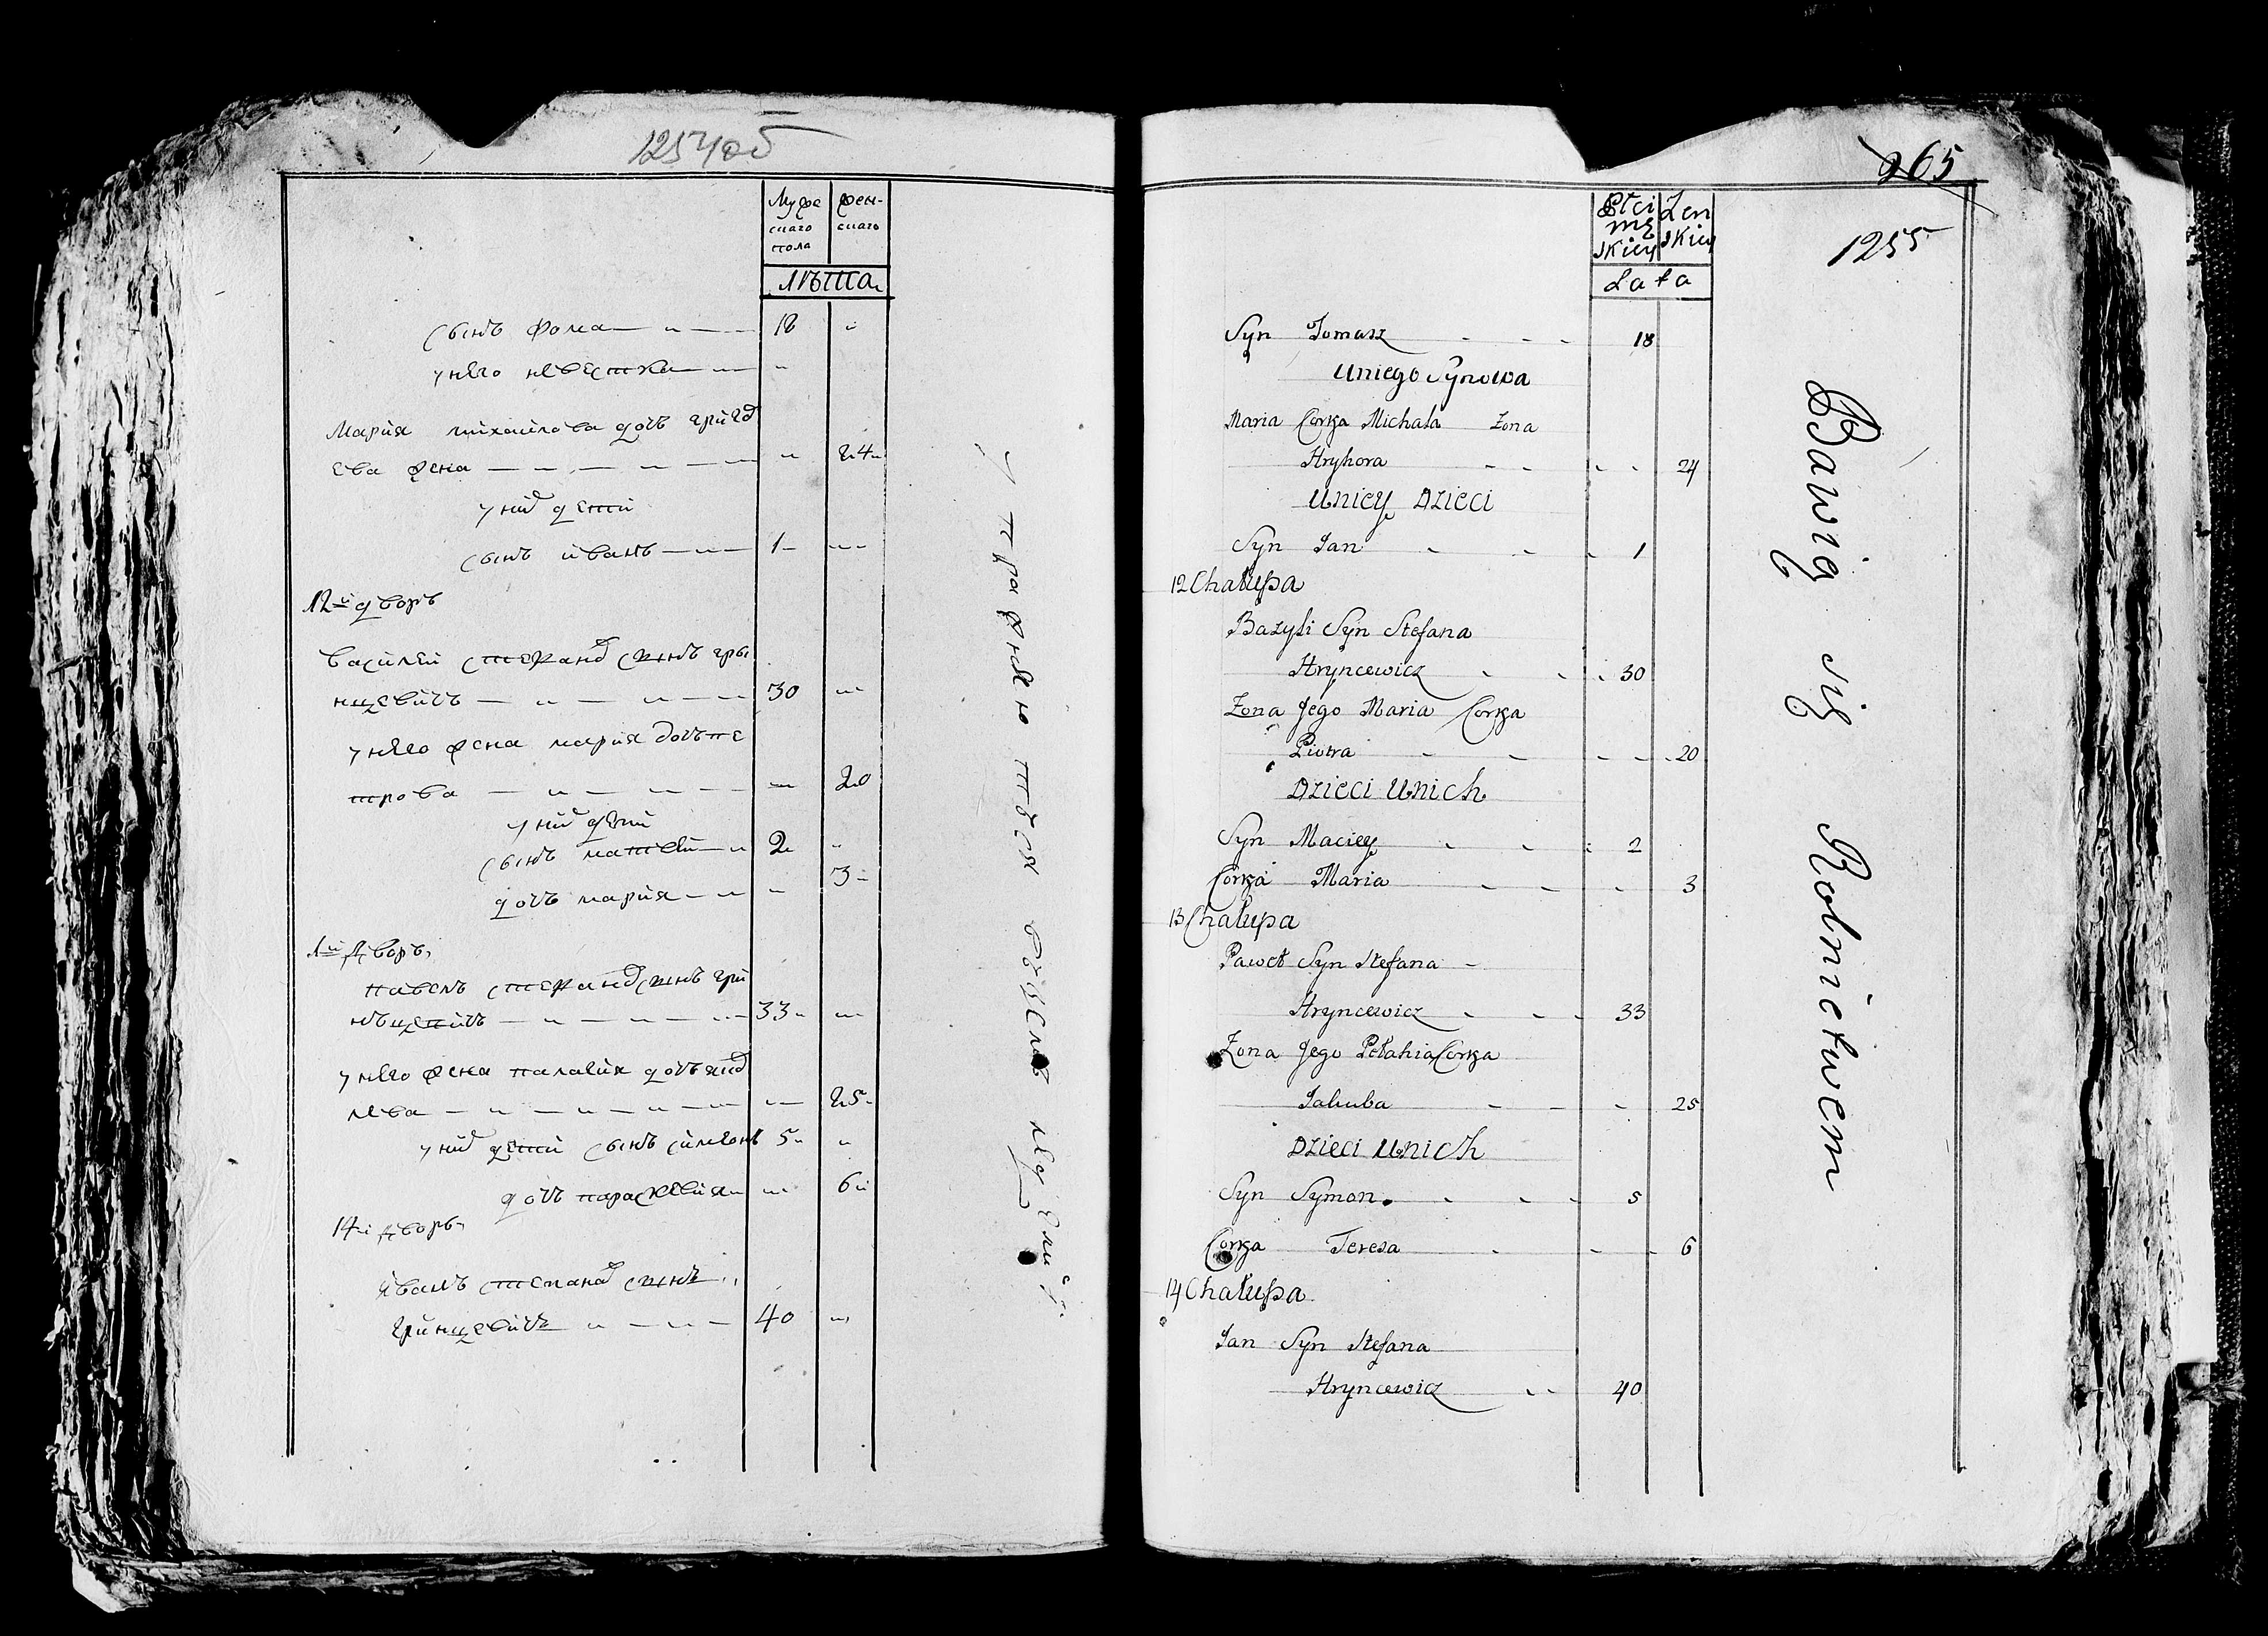 1254об
Мужескаго пола
женскаго
лѣта
сынъ фома 18
у нѣго невестка
Мария михаилова дочь григо
ева жена 24
у ниⷯ дети
сынъ иванъ 1
12й дворъ
василей степаноⷡ сынъ гры
нцевичъ 30
у нѣго жена мария дочь пе
трова 20
у ниⷯ дети
сынъ матвей 2
дочь мария 3
дворъ
павелъ степаноⷡ сынъ гри
нъцевичъ 33
у нѣго жена палагия дочь
лева 25
у ниⷯ дети сынъ симеонъ 5
дочь параскевия 6
14й дворъ
иванъ степаноⷡ сынъ
гринцевичъ 40
265
1255
Płci mę skiey
Żen skiey
Lata
Syn Tomasz 18
Uniego Synowa
Maria Corka Michała Zona
Hryhora 24
Uniey Dzieci
Syn Jan 1
12 Chałupa
Bazyli Syn Stefana
Hryncewicz 30
Zona Jego Maria Corka
Piotra 20
Dzieci Unich
Syn Maciey 2
Corka Maria 3
13 Chałupa
Paweł Syn Stefana
Hryncewicz 33
Zona Jego Pełahia Corka
Jakuba 25
Dzieci Unich
Syn Symon 5
Corka Teresa 6
14 Chałupa
Jan Syn Stefana
Hryncewicz 40
Bawią się Rolnictwem